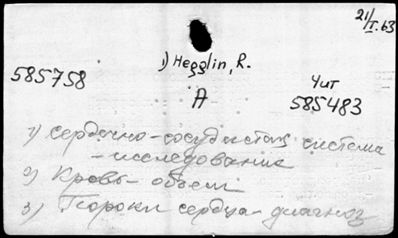 21/I.63
1) Hegglin, R.
585758
Чит
A
585483
1) Сердечно-сосудистая система
- исследование
2) Кровь - объем
3) Пороки сердца - диагноз